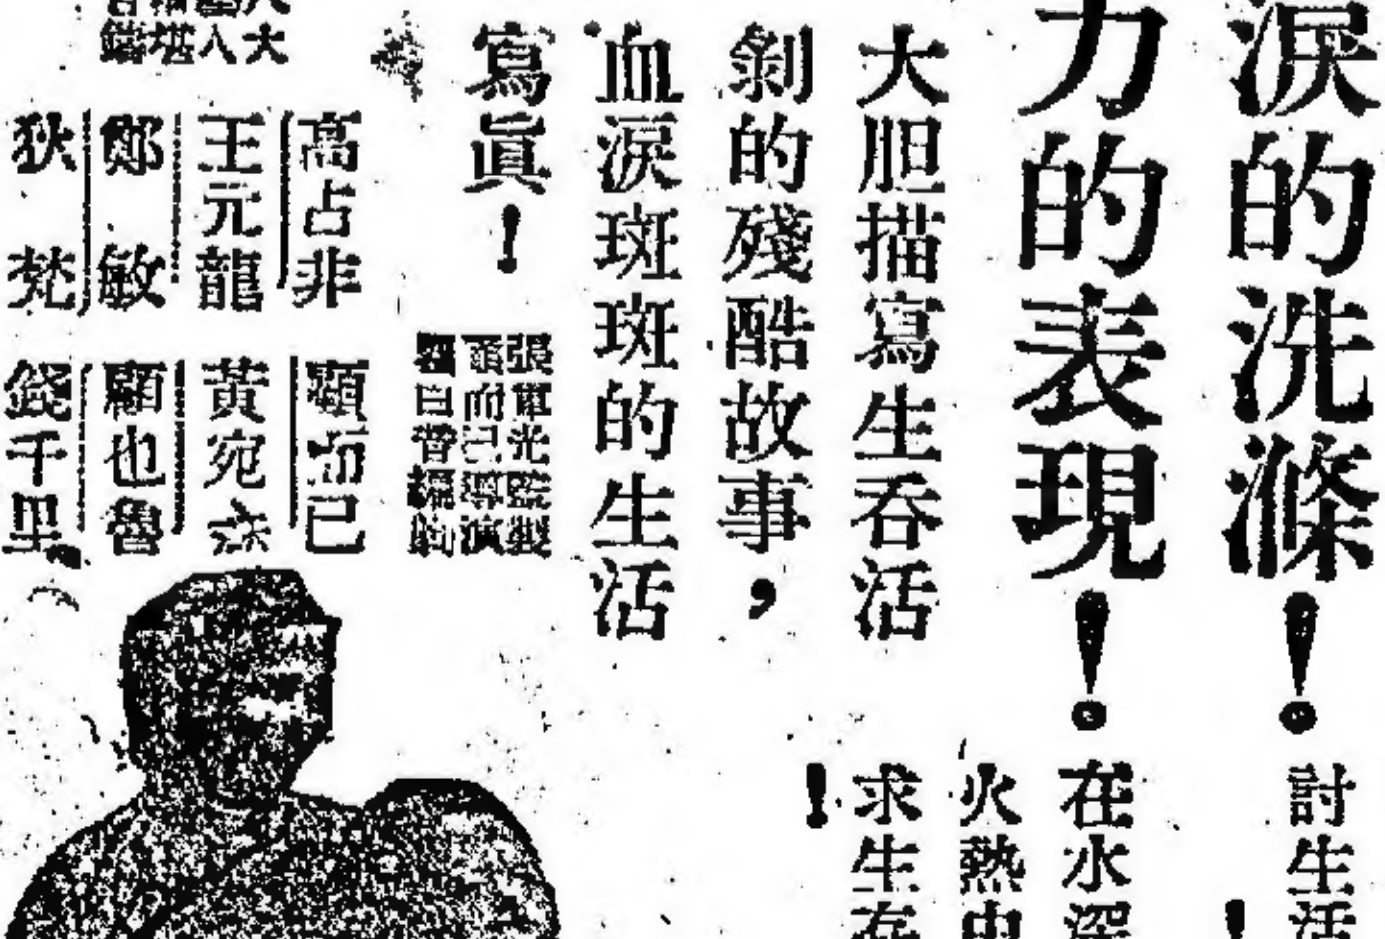 淚的洗滌！。
力的表現！。
討生活
！
在水深
火熱中
求生存
！
大胆描寫生吞活
剝的殘酷故事，
血淚斑斑的生活
寫眞！
張軍光監製
顧而已導演
白
高占非
王元龍
鄭敏
狄梵
顧而已
黃宛
顧也魯
錢千里
大
人